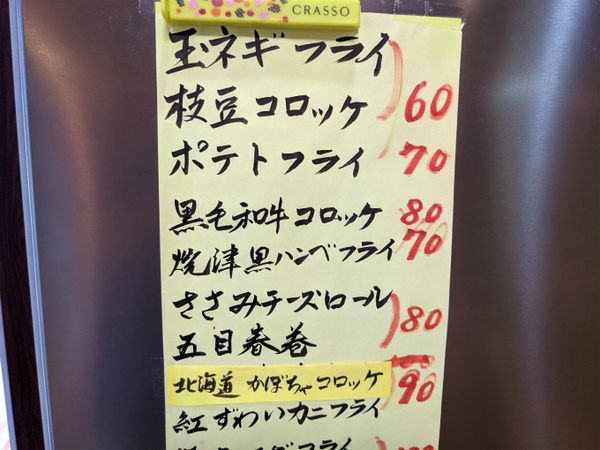 CRASSO
玉ネギフライ
枝豆コロッケ 60
ポテトフライ 70
黒毛和牛コロッケ 80
焼津黒ハンペフライ 70
ささみチーズロール
五目春巻 80
北海道 かぼちゃコロッケ 90
紅ずわいカニフライ
フライ